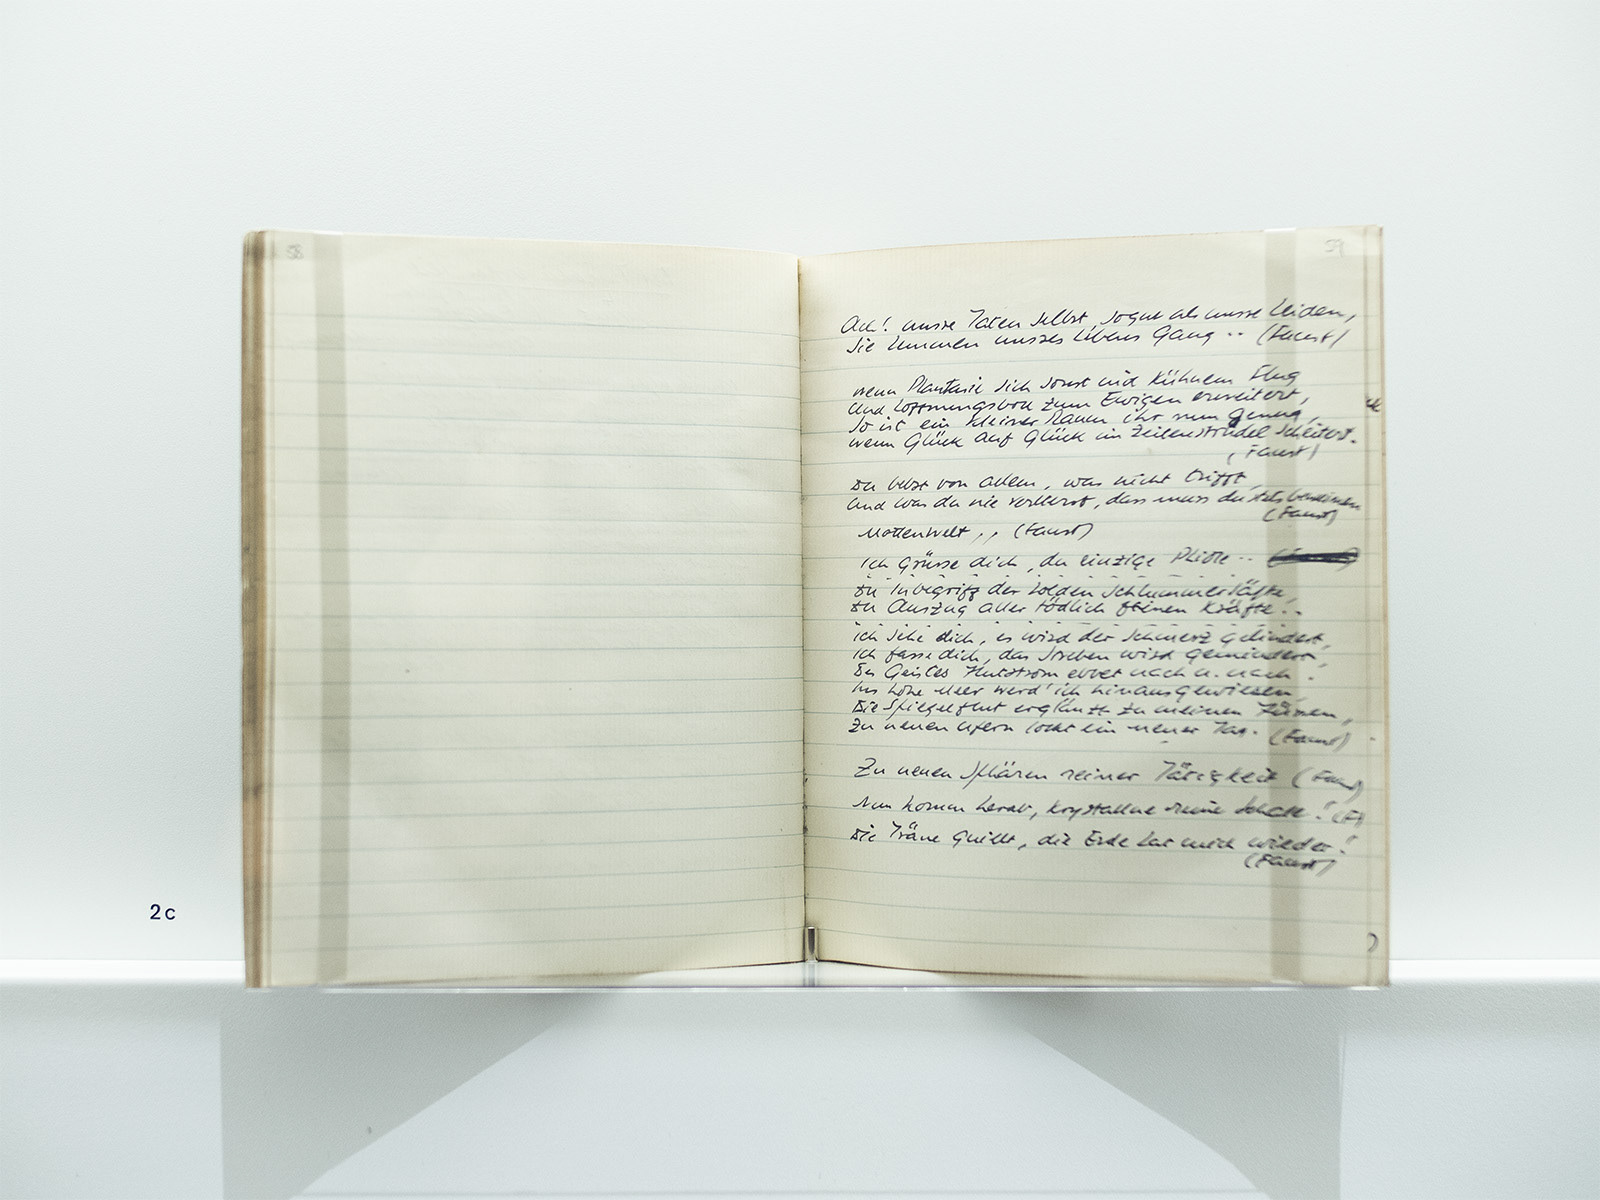 58
59
Ach! unsre Taten selbst, sogut als unsre Leiden,
Sie hemmen unsres Lebens Gang .. (Faust)
wenn Phantasie sich sonst mit Kühnem Flug
und hoffnungsvoll zum Ewigen erweitert,
So ist ein kleiner Raum ihr nun genug,
wenn Glück auf Glück im Zeitenstrudel scheitert.
(Faust)
Du bebst von allem, was nicht trifft,
und was du nie verlierst, dass muss du stets beweinen
(Faust)
Mottenwelt ,, (Faust)
Ich Grüsse dich, du einzige Phiole ..
Du Inbegriff der holden Schlummersäfte,
Du Auszug aller tödlich feinen Kräfte..
ich sehe dich, es wird der Schmerz gelindert,
ich fasse dich, das Streben wird gemindert,
Des Geistes Flutstrom ebbet nach u. nach.
Ins hohe Meer werd' ich hinausgewiesen,
Die Spiegelflut erglänzt zu meinen Füssen,
Zu neuen Ufern lockt ein neuer Tag. (Faust)
Zu neuen Sphären reiner Tätigkeit (Faust)
Nun komm herab, krystallne reine Schale! (F)
Die Träne Quillt, die Erde hat mich wieder!
(Faust)
2c